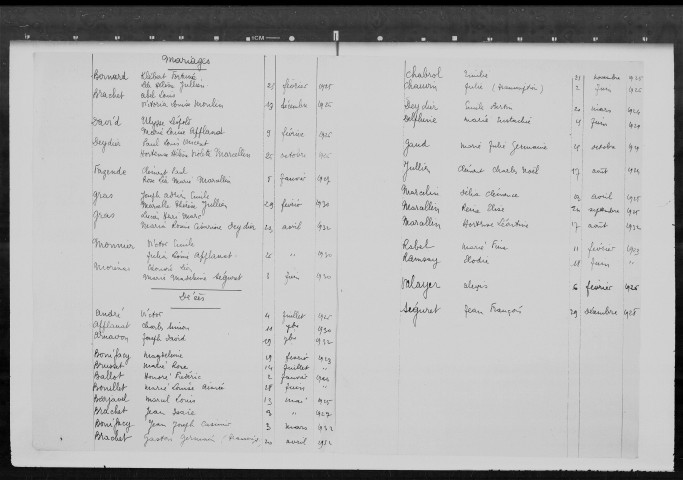 ICM
Mariages
Bernard
Jullien 25 février 1925
Brachet Abel Louis
Victoria Louise Moulin 19 décembre 1925
David Ulysse Léopold
Marie Louise Afflanat 9 février 1925
Deydier Paul Louis Vincent
Hortense Marcellin 25 octobre
Fazende Clément Paul
Rose Marie Marcellin 5 janvier 1929
Gras Joseph Emile
Jullien 29 février 1930
Gras Lucien Henri Marc
Maria Louise Deydier 23 avril 1932
Monnier Victor Emile
Julia Louise Afflanat 25 " 1930
Morénas
Marie Madeleine Séguret 2 juin 1930
Décès
André Victor 4 juillet 1925
Afflanat Charles 11 9bre 1930
Arnavon Joseph David 19 1932
Bonifacy Magdeleine 19 1923
Marie Rose 14 juillet "
Ballot Honoré Frédéric 2 janvier
Bouillet Marie Louise Aimée 28 juin "
Marcel Louis 13 mai 1925
Brachet Jean 9 " 1929
Bonifacy Jean Joseph Casimir 3 mars 1932
Brachet Gaston Germain 20 avril 1932
Chabrol Emilie 21 novembre 1925
Chauvin Julie (Assomption) 2 juin 1926
Deydier Emile 20 mars 1924
Delphine Marie Eustachie 4 juin 1924
Gaud Marie Julie Germaine 4 octobre 1924
Jullien Clément Charles Noël 17 août 1924
Marcelin Délia Clémence avril 1925
Marcellin Rose Elise 22 septembre 1925
Marcellin Hortense Léontine 17 août 1932
Rabet Marie 11 février 1923
Ramsay Elodie 18 juin "
Valayer Alexis 6 février 1926
Séguret Jean François 29 décembre 1928